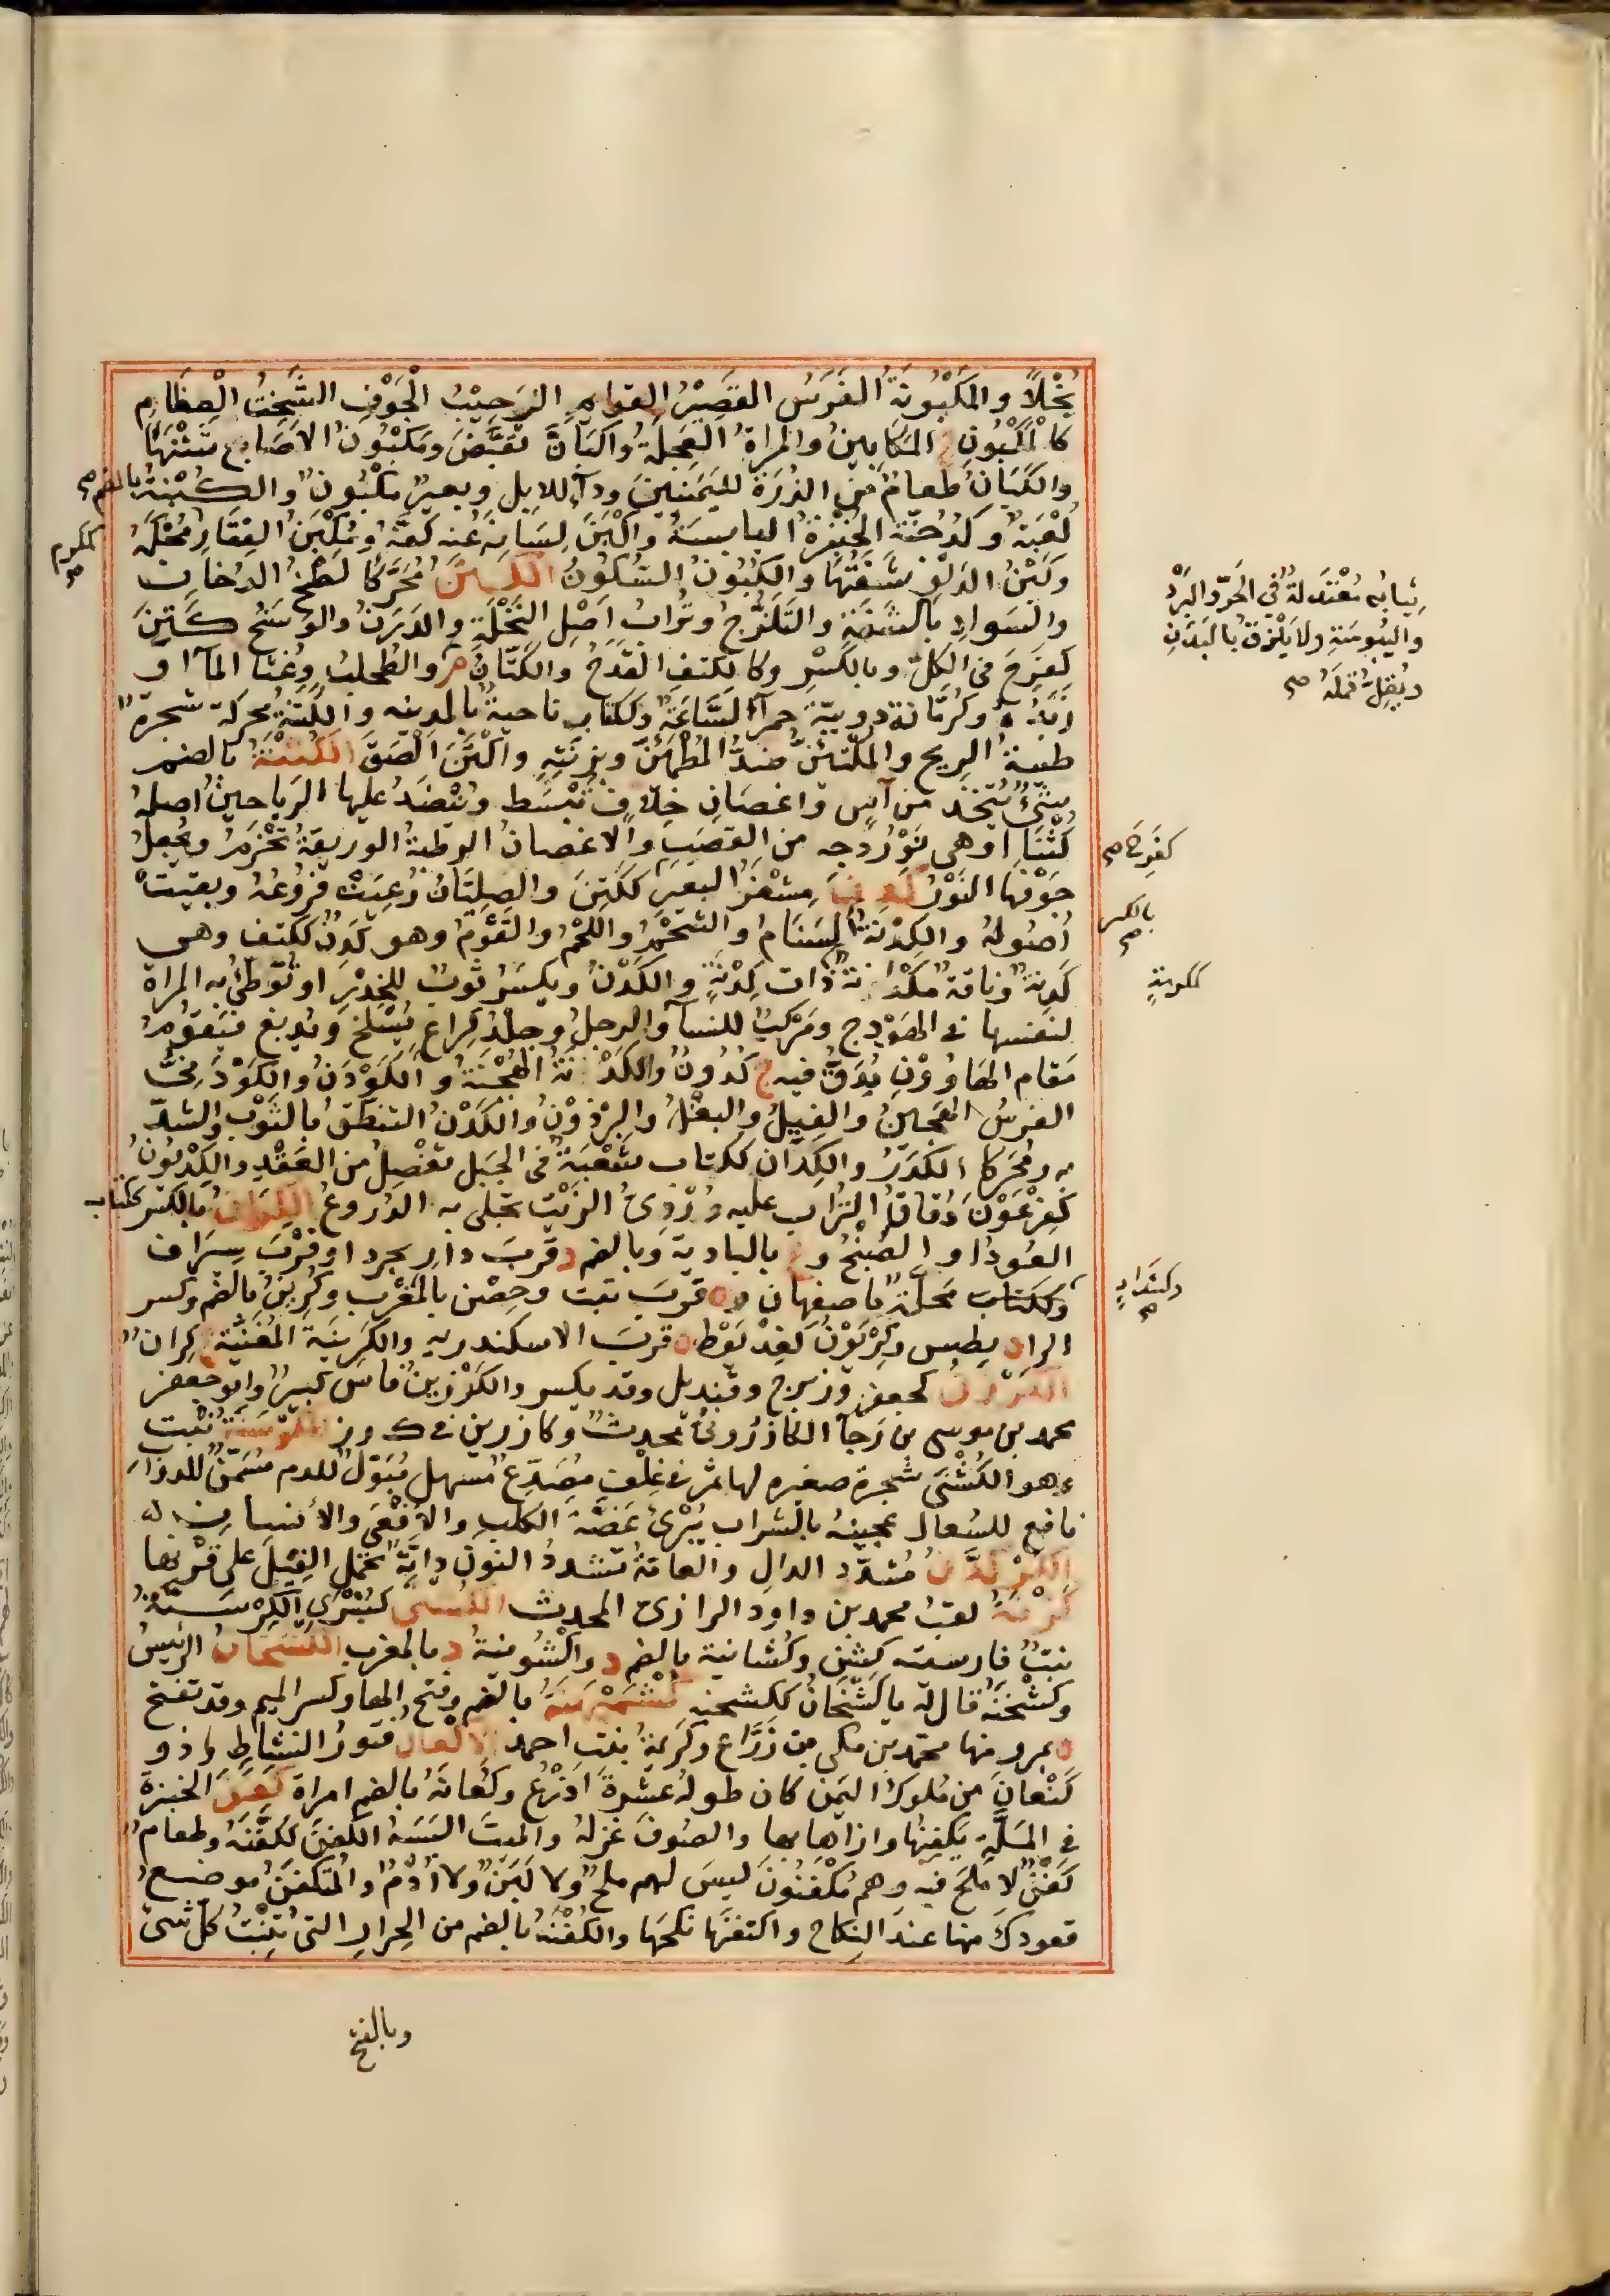 بُخْلًا والمَكْبُونَةُ الفَرَسُ القَصِيْرُ القوايم الرَحِيْبُ الْجَوْفِ الشَّخِيْتُ الْعِظَامِ
كالْمَكْبُونِ ج المَكَابِيْنُ والمراةُ العَجِلَةُ واكبَأنَّ تقَبَّضَ ومَكْبُونُ الاصَابع شَثْنُهَا
والكُبَانُ طَعامٌ مِنَ الذُرَةِ لليَمَنيينَ ودآء للابل وبعيرٌ مَكْبُونٌ والكُبْنَةُ بالضم صح
لُعْبَةٌ وكدُجُنَّة الخُبْزَةُ اليابسَةُ واكْبَنَ لِسَانَهُ عنه كفَّهُ ومُكْبَنُ الفِقَارِ مُحْكَمُهُ
وكَبْنُ الدَلْوِ شَفَتُهَا والكُبُونُ السُّكُونُ الكَتَنُ مُحَرَّكًا لَطْخُ الدُخَانِ
والسَوادِ بالشَفَةِ والتَلَزُّجُ وتُرابُ اصْلِ النَخْلَةِ والدَرَنُ والوَسَخُ كَتِنَ
كفَرِحَ في الكلّ وبالكَسْرِ وكالكتفِ القَدَحُ والكَتَّانُ م والطُحلبُ وغُثا المآ او
زَبَدُه وكرُمَّانة دويبّة حمرآ لَسَّاعَةٌ وككتابٍ ناحيةٌ بالمدينه والكَتنةُ محركة شجرةٌ
طيبةُ الريح والمُكْتَئنُّ ضدُّ المُطْمَئِنّ وبزنتِهِ واَكْتَنَ الْصَقَ الكُثْنَةُ بالضم
شيءٌ يُتّخذ من آسٍ واغصَانِ خِلافٍ تُبْسَط ويُنْضَدُ عليها الرَياحينُ اصلهُ
كُثْنَا او هي نَوَرْدَجه من القَصَبِ والاغصَانُ الرطبةُ الوَريقةُ تُحْزَمُ ويُجعلُ
جَوْفها النَوْرُ كدِنَ مِشْفَرُ البعيرِ ككَتِنَ والصِلِيَّانُ رُعِيَتْ فُرُوعُهُ وبقيتْ
اُصُولهُ والكِدْنَةُ السَنَامُ والشَحْمُ واللحْمُ والقُوَّةُ وهو كَدِنٌ ككتف وهي
كَدِنةٌ وناقةٌ مُكْدَنةٌ ذات كِدْنَةٍ والكَدْنُ ويكسَرُ ثَوبٌ للخِدْرِ او تُوَطِّئُ به المراة
لنفسها في الهَوْدج ومَرْكبٌ للنسآ والرحلُ وجلْدُ كراعٍ يُسْلخ ويُدبغ فيَقُومُ
مَقام الهَاوُوْنِ يُدَقُّ فيه ج كُدُونٌ والكَدَانَةُ الهُجْنَةُ والكَوْدَنُ والكَوْدَنِيُّ
الفرسُ الهَجِينُ والفِيلُ والبغلُ والبِرْذَوْنُ والكَدْنُ التنطّقُ بالثَوبِ والشدّ
به ومُحَرّكا الكَدَرُ والكِدَان ككتاب شُعْبَةٌ في الجَبَل تفْصِلُ من العَقْدِ والكِدْيَوْنُ
كفِرْعَوْنَ دُقاقُ التُرابِ عليه دُرْدِيُّ الزَيْت تجلى به الدُروعُ الكِرَانُ بالكسر كتاب
العُودُ او الصَّنْجُ وع بالبادية وبالضم د قربَ دار بجرد او قُرْبَ سِيرَاف
وككتاب مَحَلّةٌ باصفهان وه قربَ تبت وحِصْن بالمَغْرِب وكُرِينُ بالضم وكسر
الرا ه بطبس وكِرْيَوْنُ كفِدْيَوْط ه قربَ الاسكندريه والكَرِينَة المُغَنِّيةُ ج كِرانٌ
الكرْزَنُ كجعفرٍ وزبرجٍ وقِنديل وقد يكسر والكَرْزِينُ فاسٌ كبيرٌ وابو جعفر
محمد بن موسى بن رَجآ الكازَرُونيُّ محدثٌ وكازرين في ك ر ز الكَرْسَنَةُ نبْت
وهو الكُشْنَى شجرة صغيره لها ثمر في غُلُفٍ مُصَدِّعٌ مسهل مُبَوّلٌ للدم مُسَمِّنٌ للدواب
نافع للسُعال عجينه بالشراب يُبْرئُ عَضّةَ الكلبِ والاَفْعَى والانسان
الكَرْكَدَّنُ مُشدّد الدالِ والعامّةُ تشددُ النونَ دابّةٌ تحمل الفِيلَ على قَرْنها
كَزْنَةُ لقبُ محمد بن داود الرازي المحدث الكُشْنَى كبُشْرَى الكَرْسَنَّةُ
نبتٌ فارسيته كِشن وكُشانية بالضم د واكْشُونيةُ د بالمغرب الكَشْخانُ الرئيسُ
وكَشْخَنَهُ قال له يا كَشْخَانُ ككشحنه كُشْمَيهنَةُ بالضم وفتح الها وكسر الميم وقد تفتح
ه بمرو منها محمد بن مكي بن زَرَّاع وكَرِيمةُ بنت احمد الاِكْعانُ فتورُ النشاطِ وذو
كَنْعانَ من مُلوكُ اليَمَن كان طولهُ عشَرة اَذرُع وكُعانَةُ بالضم امراة كفَنَ الخبزةَ
في المَلَّةِ يَكفِنُها وَاراها بها والصُوفَ غزلهُ والميتَ البَسَهُ الكفَنَ ككَفَّنَهُ وطعام
كَفْنٌ لا مِلحَ فيه وهم مُكْفَنُونَ ليسَ لهم ملحٌ ولا لَبَنٌ ولا اُدُمٌ والمُتكفَّنُ موضع
قعودك منها عندَ النكاح واكتفنَها نكحَها والكُفْنَةُ بالضم من الحِرارِ التي تُنْبِتُ كلّ شئ
وبالفتح
ككرم صح
ثيابُه مُعْتدِلةٌ في الحَرّ والبَرْدِ
واليُبوسَةِ ولا يَلْزَقُ بالبَدَنِ
ويُقِلُّ قَملَهُ صح
كفَرِحَ صح
بالكسر صح
ككرمةٍ
وكشدادٍ صح